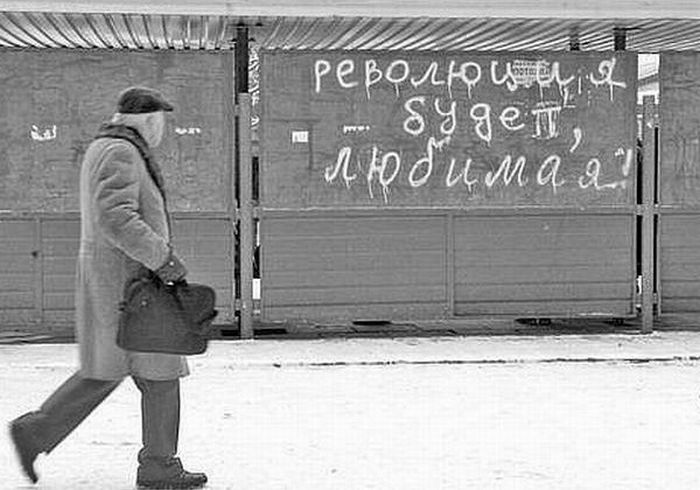 революция
будет,
любимая!